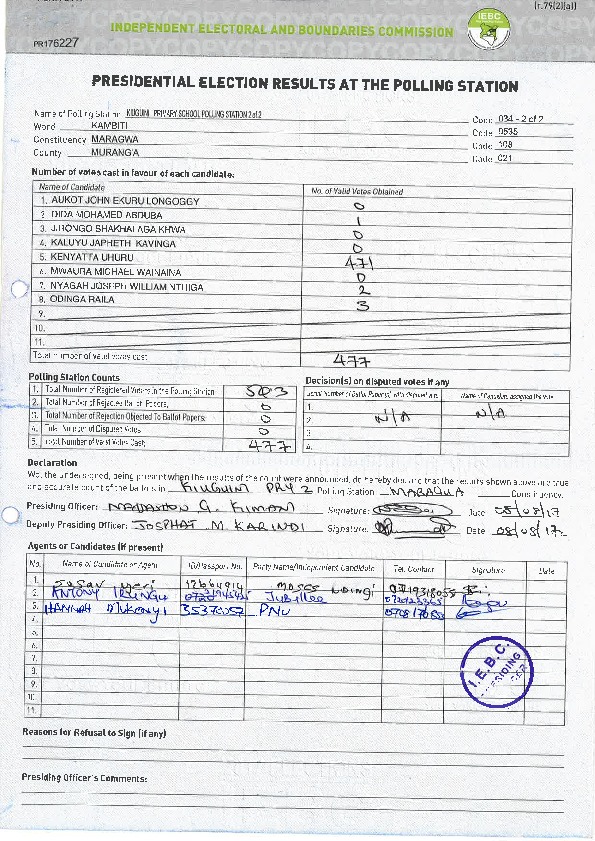 (r.79(2)(a))
INDEPENDENT ELECTORAL AND BOUNDARIES COMMISSION
IEBC
PR176227
PRESIDENTIAL ELECTION RESULTS AT THE POLLING STATION
Name of Polling Station KIUGUINI PRIMARY SCHOOL POLLING STATION 2 of 2 Code 034 - 2 of 2
Ward KAMBITI Code 0535
Constituency MARAGWA Code 108
County MURANG'A Code 021
Number of votes cast in favour of each candidate:
Name of Candidate No. of Valid Votes Obtained
1. AUKOT JOHN EKURU LONGOGGY 0
2. DIDA MOHAMED ABDUBA 1
3. JIRONGO SHAKHALAGA KHWA 0
4. KALUYU JAPHETH KAVINGA 0
5. KENYATTA UHURU 471
6. MWAURA MICHAEL WAINAINA 0
7. NYAGAH JOSEPH WILLIAM NTHIGA 2
8. ODINGA RAILA 3
9.
10.
11.
Total number of valid votes cast 477
Polling Station Counts Decision(s) on disputed votes if any
1. Total Number of Registered Voters in the Polling Station 503
Serial Number of Ballot Paper(s) with disputed vote Name of Candidate assigned the vote
2. Total Number of Rejected Ballot Papers; 0 1.
3. Total Number of Rejection Objected To Ballot Papers: 0 2. N/A N/A
4. Total Number of Disputed Votes 0
5. Total Number of Valid Votes Cast; 477 4.
Declaration
We, the undersigned, being present when the results of the count were announced, do hereby declare that the results shown above are true
and accurate count of the ballots in KIUGUINI PRY 2 Polling Station MARAGUA Constituency.
Presiding Officer: G. KIMANI Signature: Date 08/08/17
Deputy Presiding Officer: JOSPHAT M. KARINDI Signature: Date 08/08/17
Agents or Candidates (if present)
No. Name of Candidate or Agent ID/Passport No. Party Name/Independent Candidate Tel. Contact Signature Date
1. 12664914 MOSES NDINGI
2. ANTONY IRUNGU Jubilee
3. HANNAH 35370052 PNU
4.
5.
6.
7.
8.
9.
10.
11.
I.E.B.C.
PRESIDING
Reasons for Refusal to Sign (if any)
Presiding Officer's Comments: